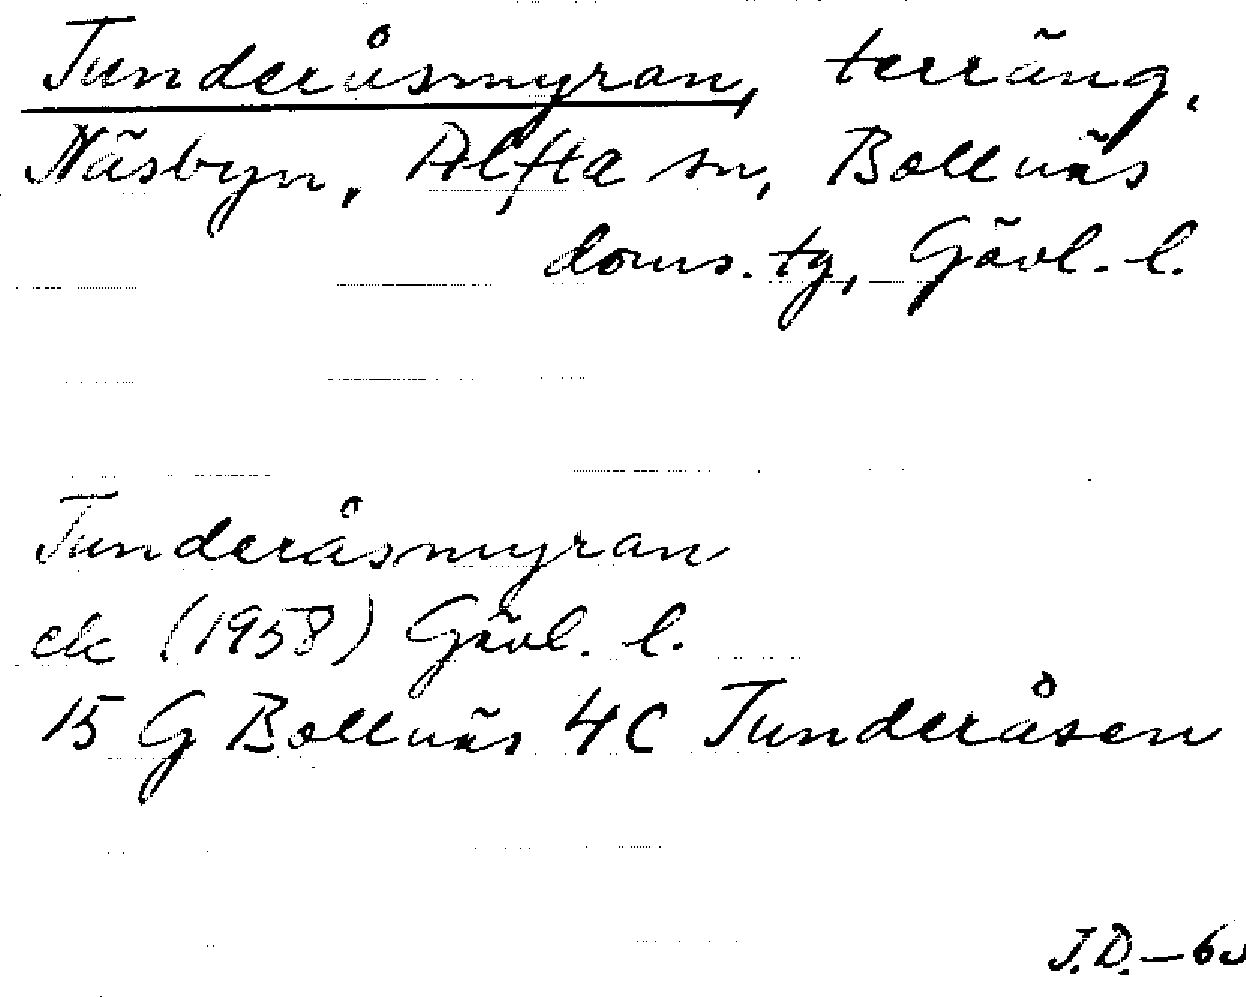 Tunderåsmyran, terräng.
Näsbyn, Alfta sn, Bollnäs
doms. tg, Gävl. l.
Tunderåsmyran
ek (1958) Gävl. l.
15 G Bollnäs 4C Tunderåsen
J.D.-60